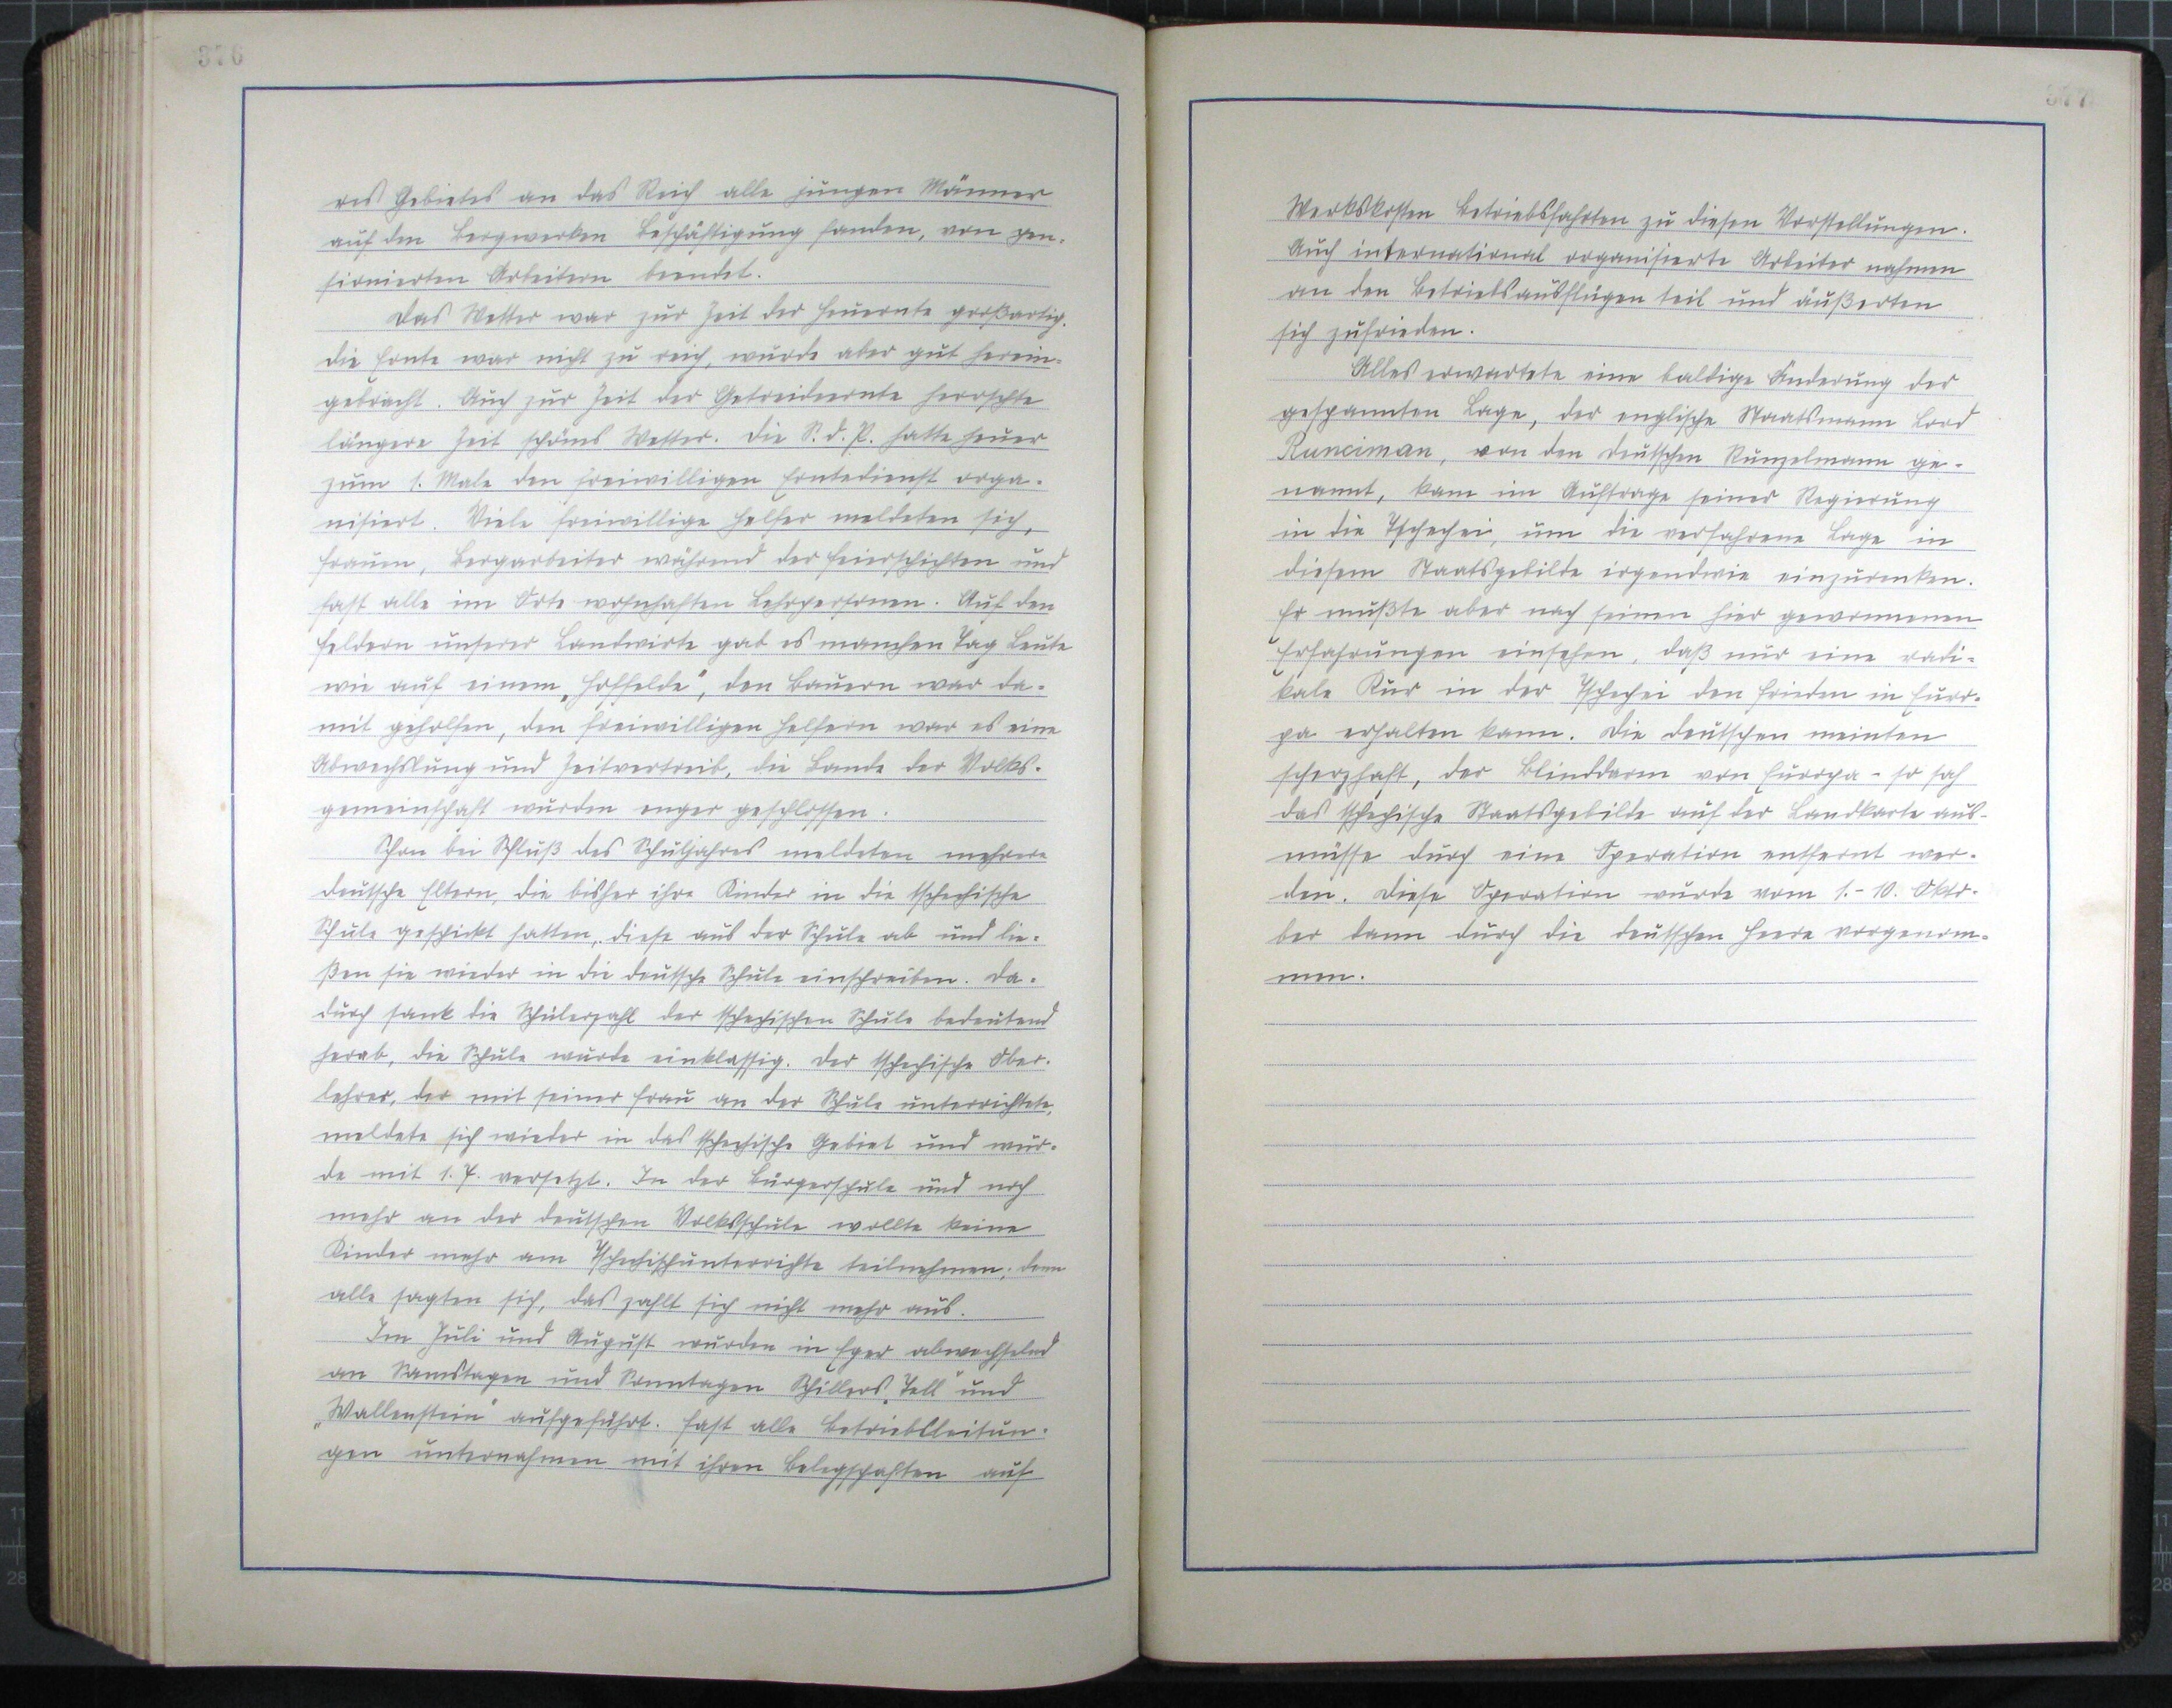 376
res Gebietes an das Reich alle jungen Männer
auf den Bergwerken Beschäftigung fanden, von pen-
sionierten Arbeitern beendet.
Das Wetter war zur Zeit der Heuernte großartig.
Die Ernte war nicht zu reich, wurde aber gut herein-
gebracht. Auch zur Zeit der Getreideernte herrschte
längere Zeit schönes Wetter. Die S. d. P. hatte heuer
zum 1. Male den freiwilligen Erntedienst orga-
nisiert. Viele freiwillige Helfer meldeten sich,
Frauen, Bergarbeiter während der Feierschichten und
fast alle im Orte wohnhaften Lehrpersonen. Auf den
Feldern unserer Landwirte gab es manchen Tag Leute
wie auf einem „Hoffelde", den Bauern war da-
mit geholfen, den freiwilligen Helfern war es eine
Abwechslung und Zeitvertreib, die Bande der Volks-
gemeinschaft wurden enger geschlossen.
Schon bei Schluß des Schuljahres meldeten mehrere
deutsche Eltern, die bisher ihre Kinder in die tschechische
Schule geschickt hatten, diese aus der Schule ab und lie-
ßen sie wieder in die deutsche Schule einschreiben. Da-
durch sank die Schülerzahl der tschechischen Schule bedeutend
herab, die Schule wurde einklassig. Der tschechische Ober-
lehrer, der mit seiner Frau an der Schule unterrichtete,
meldete sich wieder in das tschechische Gebiet und wur-
de mit 1. 7. versetzt. In der Bürgerschule und noch
mehr an der deutschen Volksschule wollte keine
Kinder mehr am Tschechischunterrichte teilnehmen; denn
alle sagten sich, das zahlt sich nicht mehr aus.
Im Juli und August wurden in Eger abwechselnd
an Samstagen und Sonntagen Schillers „Tell" und
„Wallenstein" aufgeführt. Fast alle Betriebsleitun-
gen unternahmen mit ihren Belegschaften auf
377
Werkskosten Betriebsfahrten zu diesen Vorstellungen.
Auch international organisierte Arbeiter nahmen
an den Betriebsausflügen teil und äußerten
sich zufrieden.
Alles erwartete eine baldige Änderung der
gespannten Lage, der englische Staatsmann Lord
Runciman, von den Deutschen Runzelmann ge-
nannt, kam im Auftrage seiner Regierung
in die Tschechei, um die verfahrene Lage in
diesem Staatsgebilde irgendwie einzurenken.
Er mußte aber nach seinen hier gewonnenen
Erfahrungen einsehen, daß nur eine radi-
kale Kur in der Tschechei den Frieden in Euro-
pa erhalten kann. Die Deutschen meinten
scherzhaft, der Blinddarm von Europa - so sah
das tschechische Staatsgebilde auf der Landkarte aus -
müsse durch eine Operation entfernt wer-
den. Diese Operation wurde vom 1.-10. Okto-
ber dann durch die deutschen Heere vorgenom-
men.